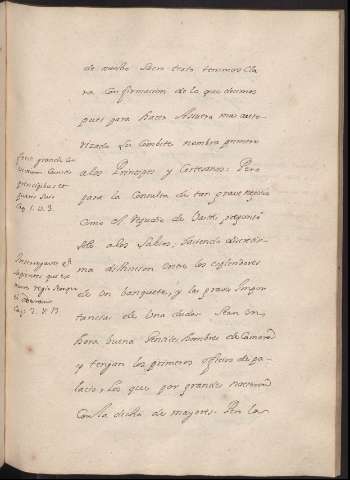 de nuestro Sacro texto tenemos Cla
ra Confirmacion de lo que decimos
pues para hacer Asuero mas auto
rizado su Combite nombra primero
a los Principes y Cortesanos: Pero
para la Consulta de tan grave negocio
como el repudio de Vasti, preguntó
solo a los Sabios, haciendo discretisi
ma distincion entre los esplendores
de un banquete, y las graves Impor
tancias de Una duda. Sean en
hora buena Gentiles hombres de Camara
y tengan los primeros oficios de pa
lacio, los que por grandes nacieron
Con la dicha de mayores. Pero los
fecit grande
principibus et
pueris suis
Cap. 1. v. 3.
Interrogavit
sapientes qui ex
more regio semper
ei aderant
Cap. 1. v. 13